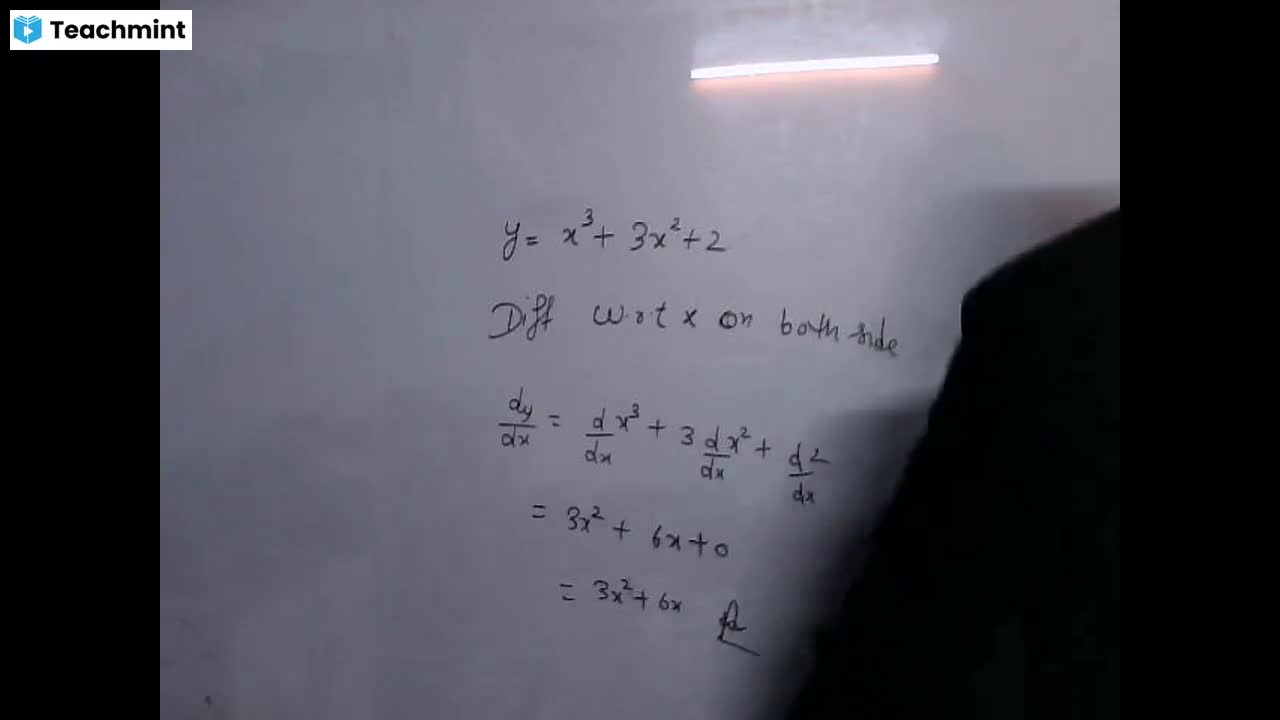 Teachmint
y = x³ + 3x² + 2
Diff w.r.t x on both side
dy/dx = d/dx x³ + 3 d/dx x² + d/dx 2
= 3x² + 6x + 0
= 3x² + 6x